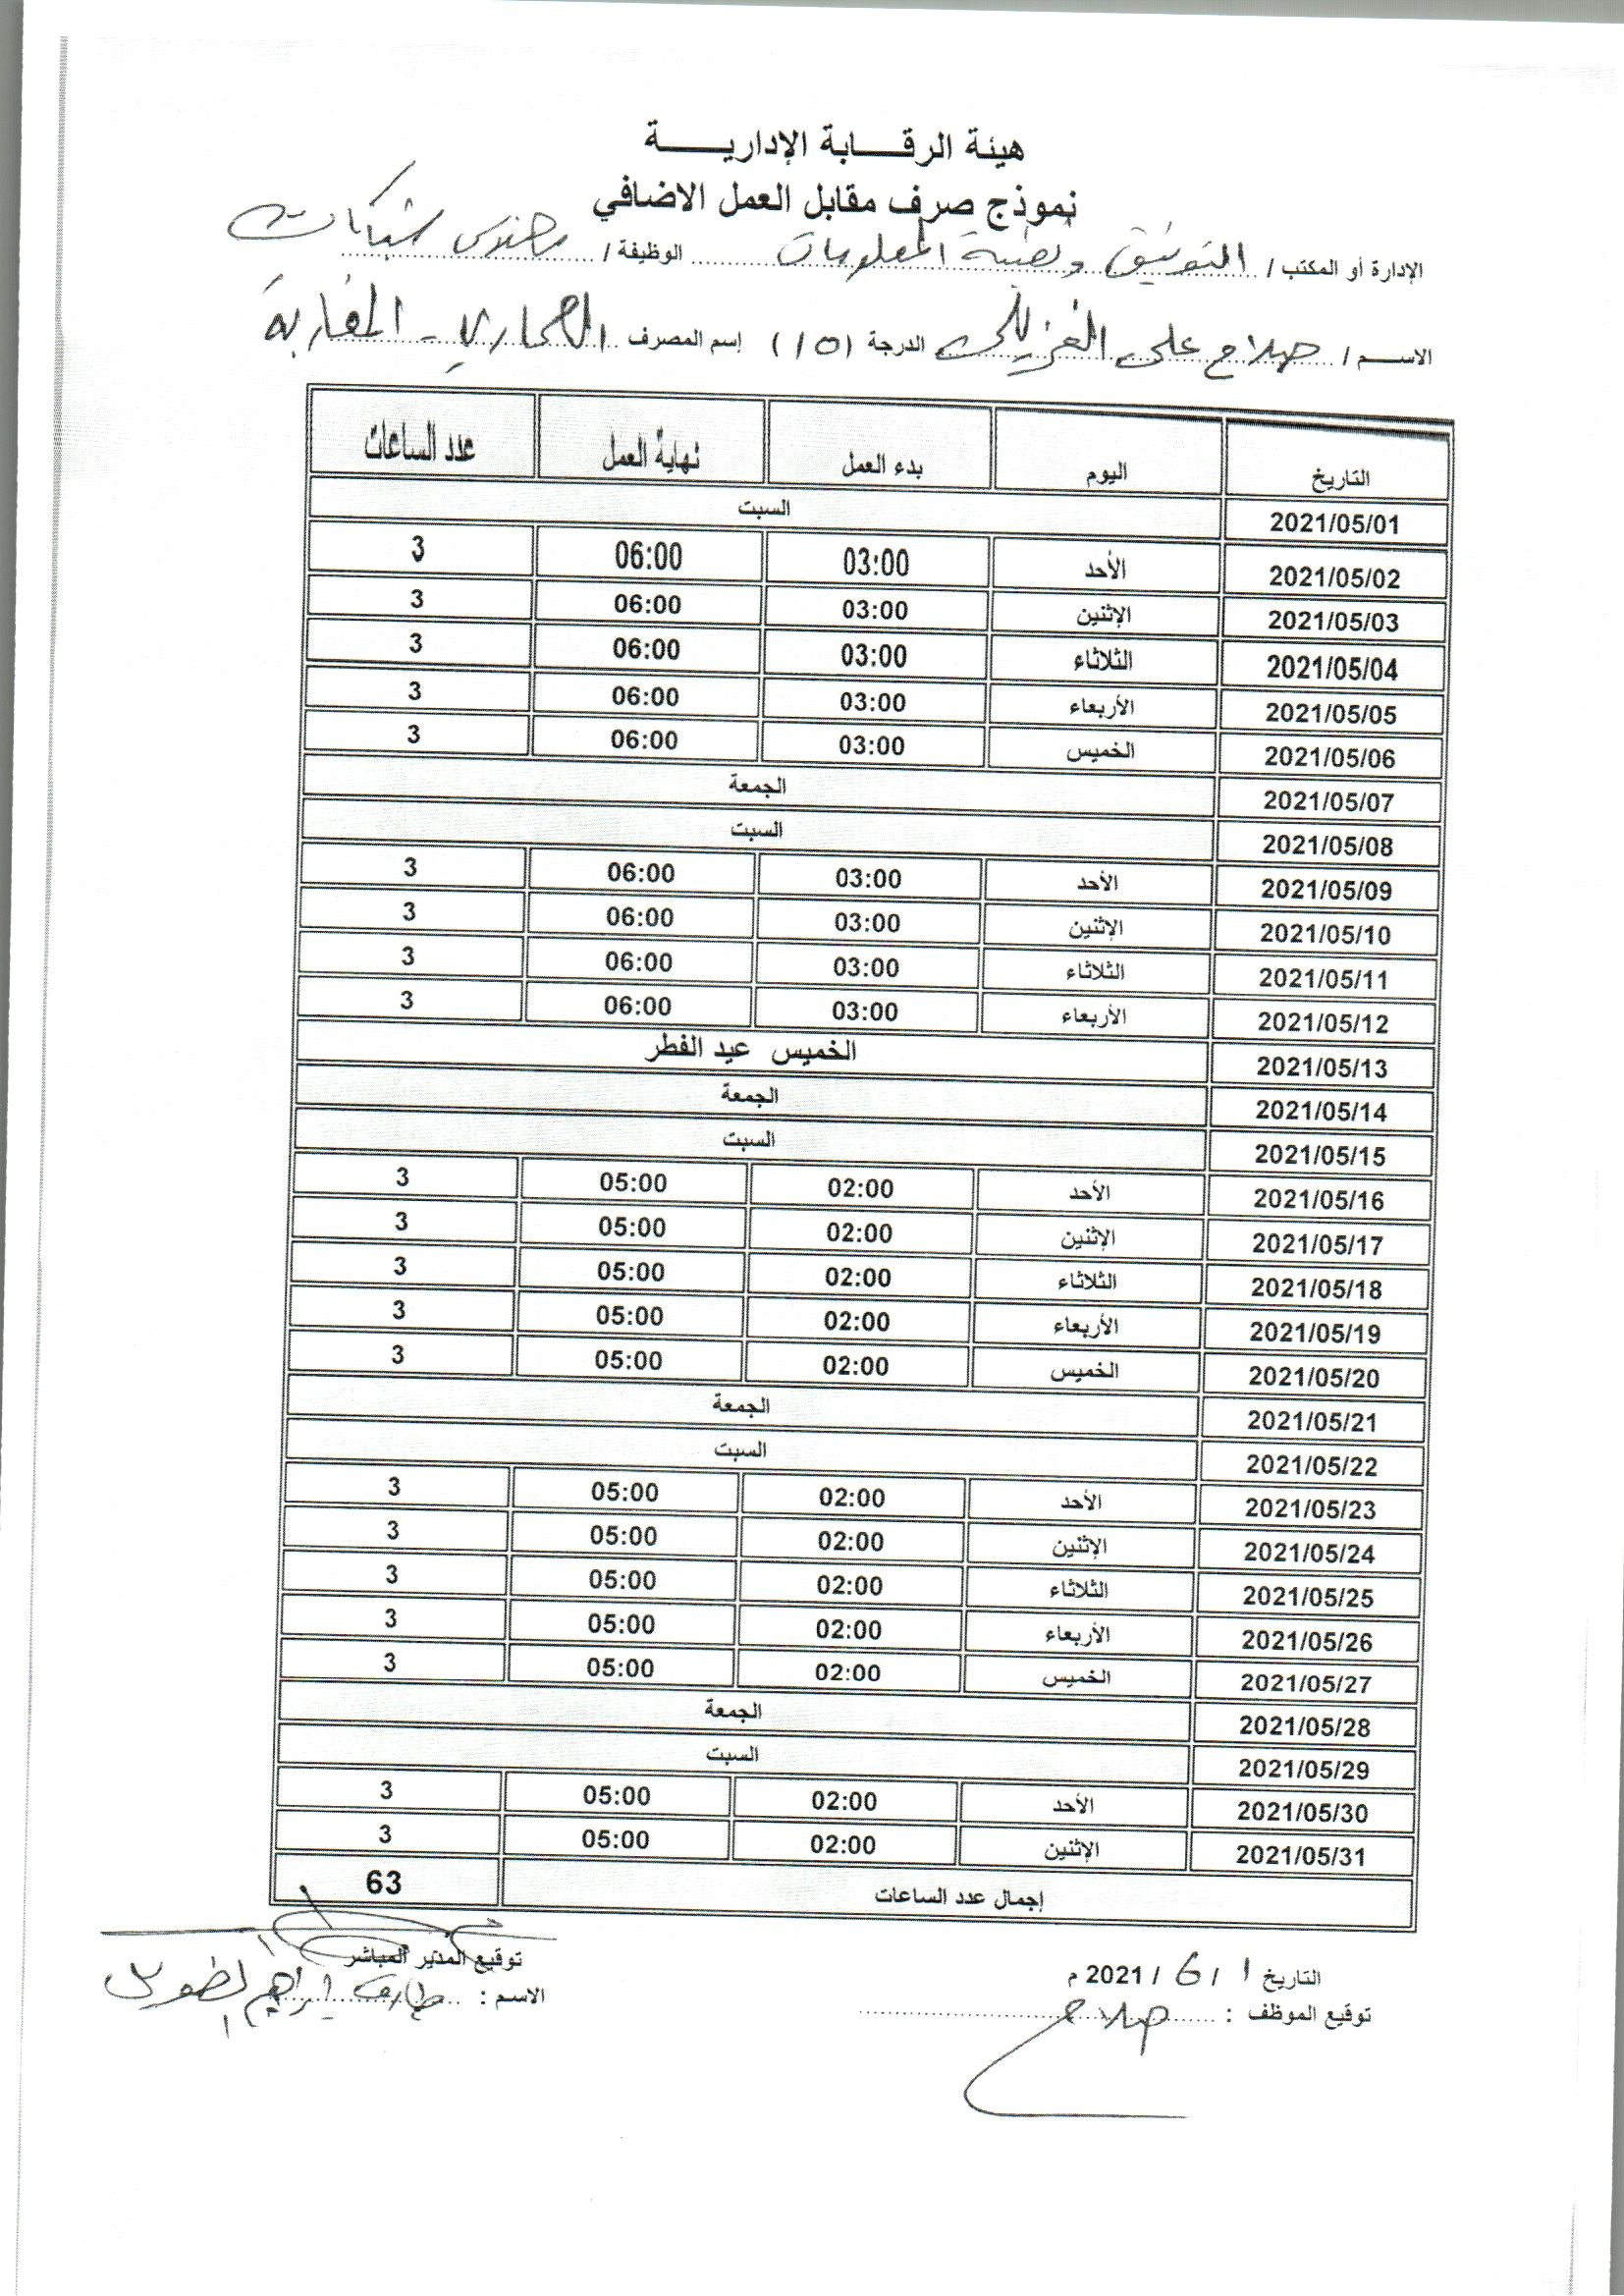 هيئة الرقــــابة الإداريـــــة
نموذج صرف مقابل العمل الاضافي
الإدارة أو المكتب / التوثيق وتقنية المعلومات الوظيفة / مهندس شبكات
الاســم / صلاح علي الدرجة (10) إسم المصرف الصحاري - المغاربة
التاريخ اليوم بدء العمل نهاية العمل عدد الساعات
2021/05/01 السبت
2021/05/02 الأحد 03:00 06:00 3
2021/05/03 الإثنين 03:00 06:00 3
2021/05/04 الثلاثاء 03:00 06:00 3
2021/05/05 الأربعاء 03:00 06:00 3
2021/05/06 الخميس 03:00 06:00 3
2021/05/07 الجمعة
2021/05/08 السبت
2021/05/09 الأحد 03:00 06:00 3
2021/05/10 الإثنين 03:00 06:00 3
2021/05/11 الثلاثاء 03:00 06:00 3
2021/05/12 الأربعاء 03:00 06:00 3
2021/05/13 الخميس عيد الفطر
2021/05/14 الجمعة
2021/05/15 السبت
2021/05/16 الأحد 02:00 05:00 3
2021/05/17 الإثنين 02:00 05:00 3
2021/05/18 الثلاثاء 02:00 05:00 3
2021/05/19 الأربعاء 02:00 05:00 3
2021/05/20 الخميس 02:00 05:00 3
2021/05/21 الجمعة
2021/05/22 السبت
2021/05/23 الأحد 02:00 05:00 3
2021/05/24 الإثنين 02:00 05:00 3
2021/05/25 الثلاثاء 02:00 05:00 3
2021/05/26 الأربعاء 02:00 05:00 3
2021/05/27 الخميس 02:00 05:00 3
2021/05/28 الجمعة
2021/05/29 السبت
2021/05/30 الأحد 02:00 05:00 3
2021/05/31 الإثنين 02:00 05:00 3
إجمال عدد الساعات 63
التاريخ 1 / 6 / 2021 م توقيع المدير المباشر
توقيع الموظف : صلاح الاسم : طارق ابراهيم